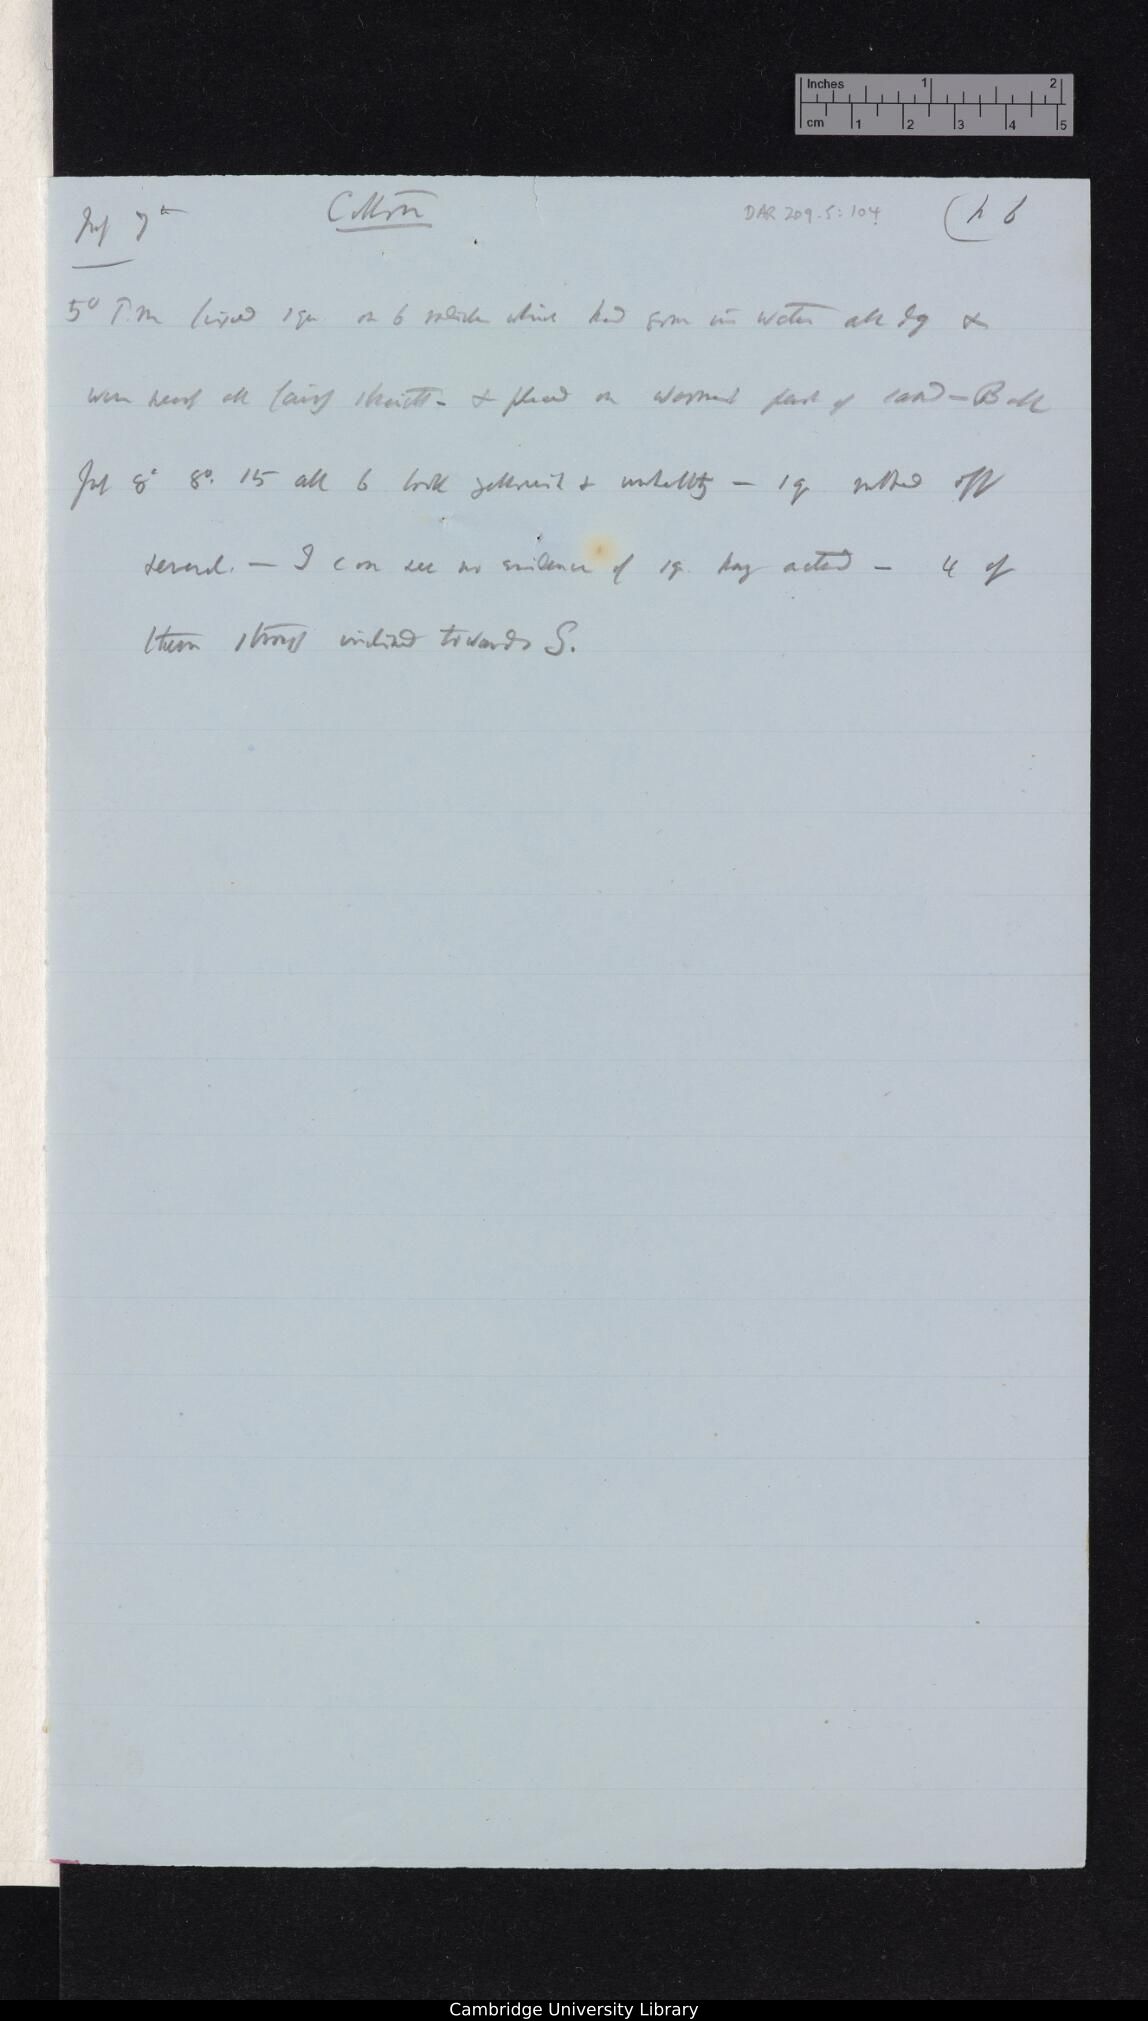 Inches 1 2
cm 1 2 3 4 5
July 7th Cotton DAR 209.5:104
5° P.m fixed sqrs on 6 radicles which had grown in water all day &
were nearly all fairly straight — & placed on warmest part of sand —
July 8° 8°. 15 all 6 look yellowish & unhealthy — sq. rubbed off
several. — I can see no evidence of sq. having acted — 4 of
them strongly inclined towards S.
Cambridge University Library